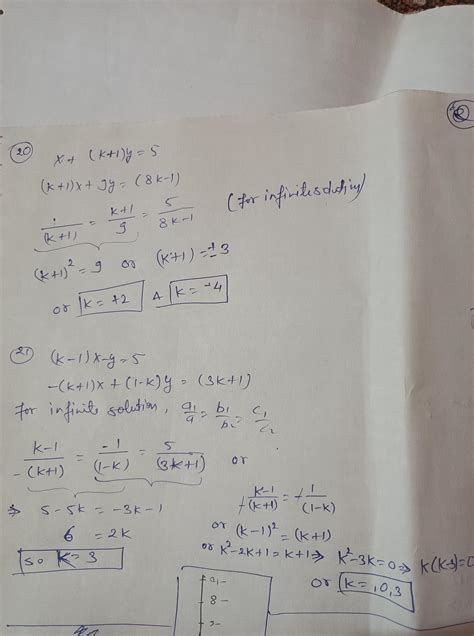 (20) x + (k+1)y = 5
(k+1)x + 9y = (8k-1)
1/(k+1) = (k+1)/9 = 5/(8k-1) (for infinite solution)
(k+1)² = 9 or (k+1) = ±3
or k = +2 & k = -4
(21) (k-1)x - y = 5
-(k+1)x + (1-k)y = (3k+1)
for infinite solution, a₁/a = b₁/b₂ = c₁/c₂
(k-1)/-(k+1) = -1/(1-k) = 5/(3k+1) or
⇒ 5-5k = -3k-1
6 = 2k
so k = 3
-(k-1)/(k+1) = -1/(1-k)
or (k-1)² = (k+1)
or k²-2k+1 = k+1 ⇒ k²-3k=0 ⇒ k(k-3)=0
or k = ,0,3
8